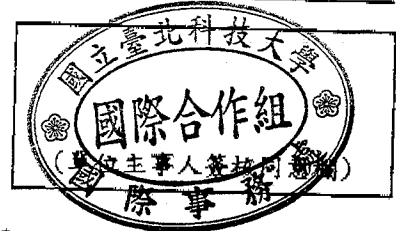 國立臺北科技大學
國際合作組
(單位主事人簽核同意欄)
國際事務處